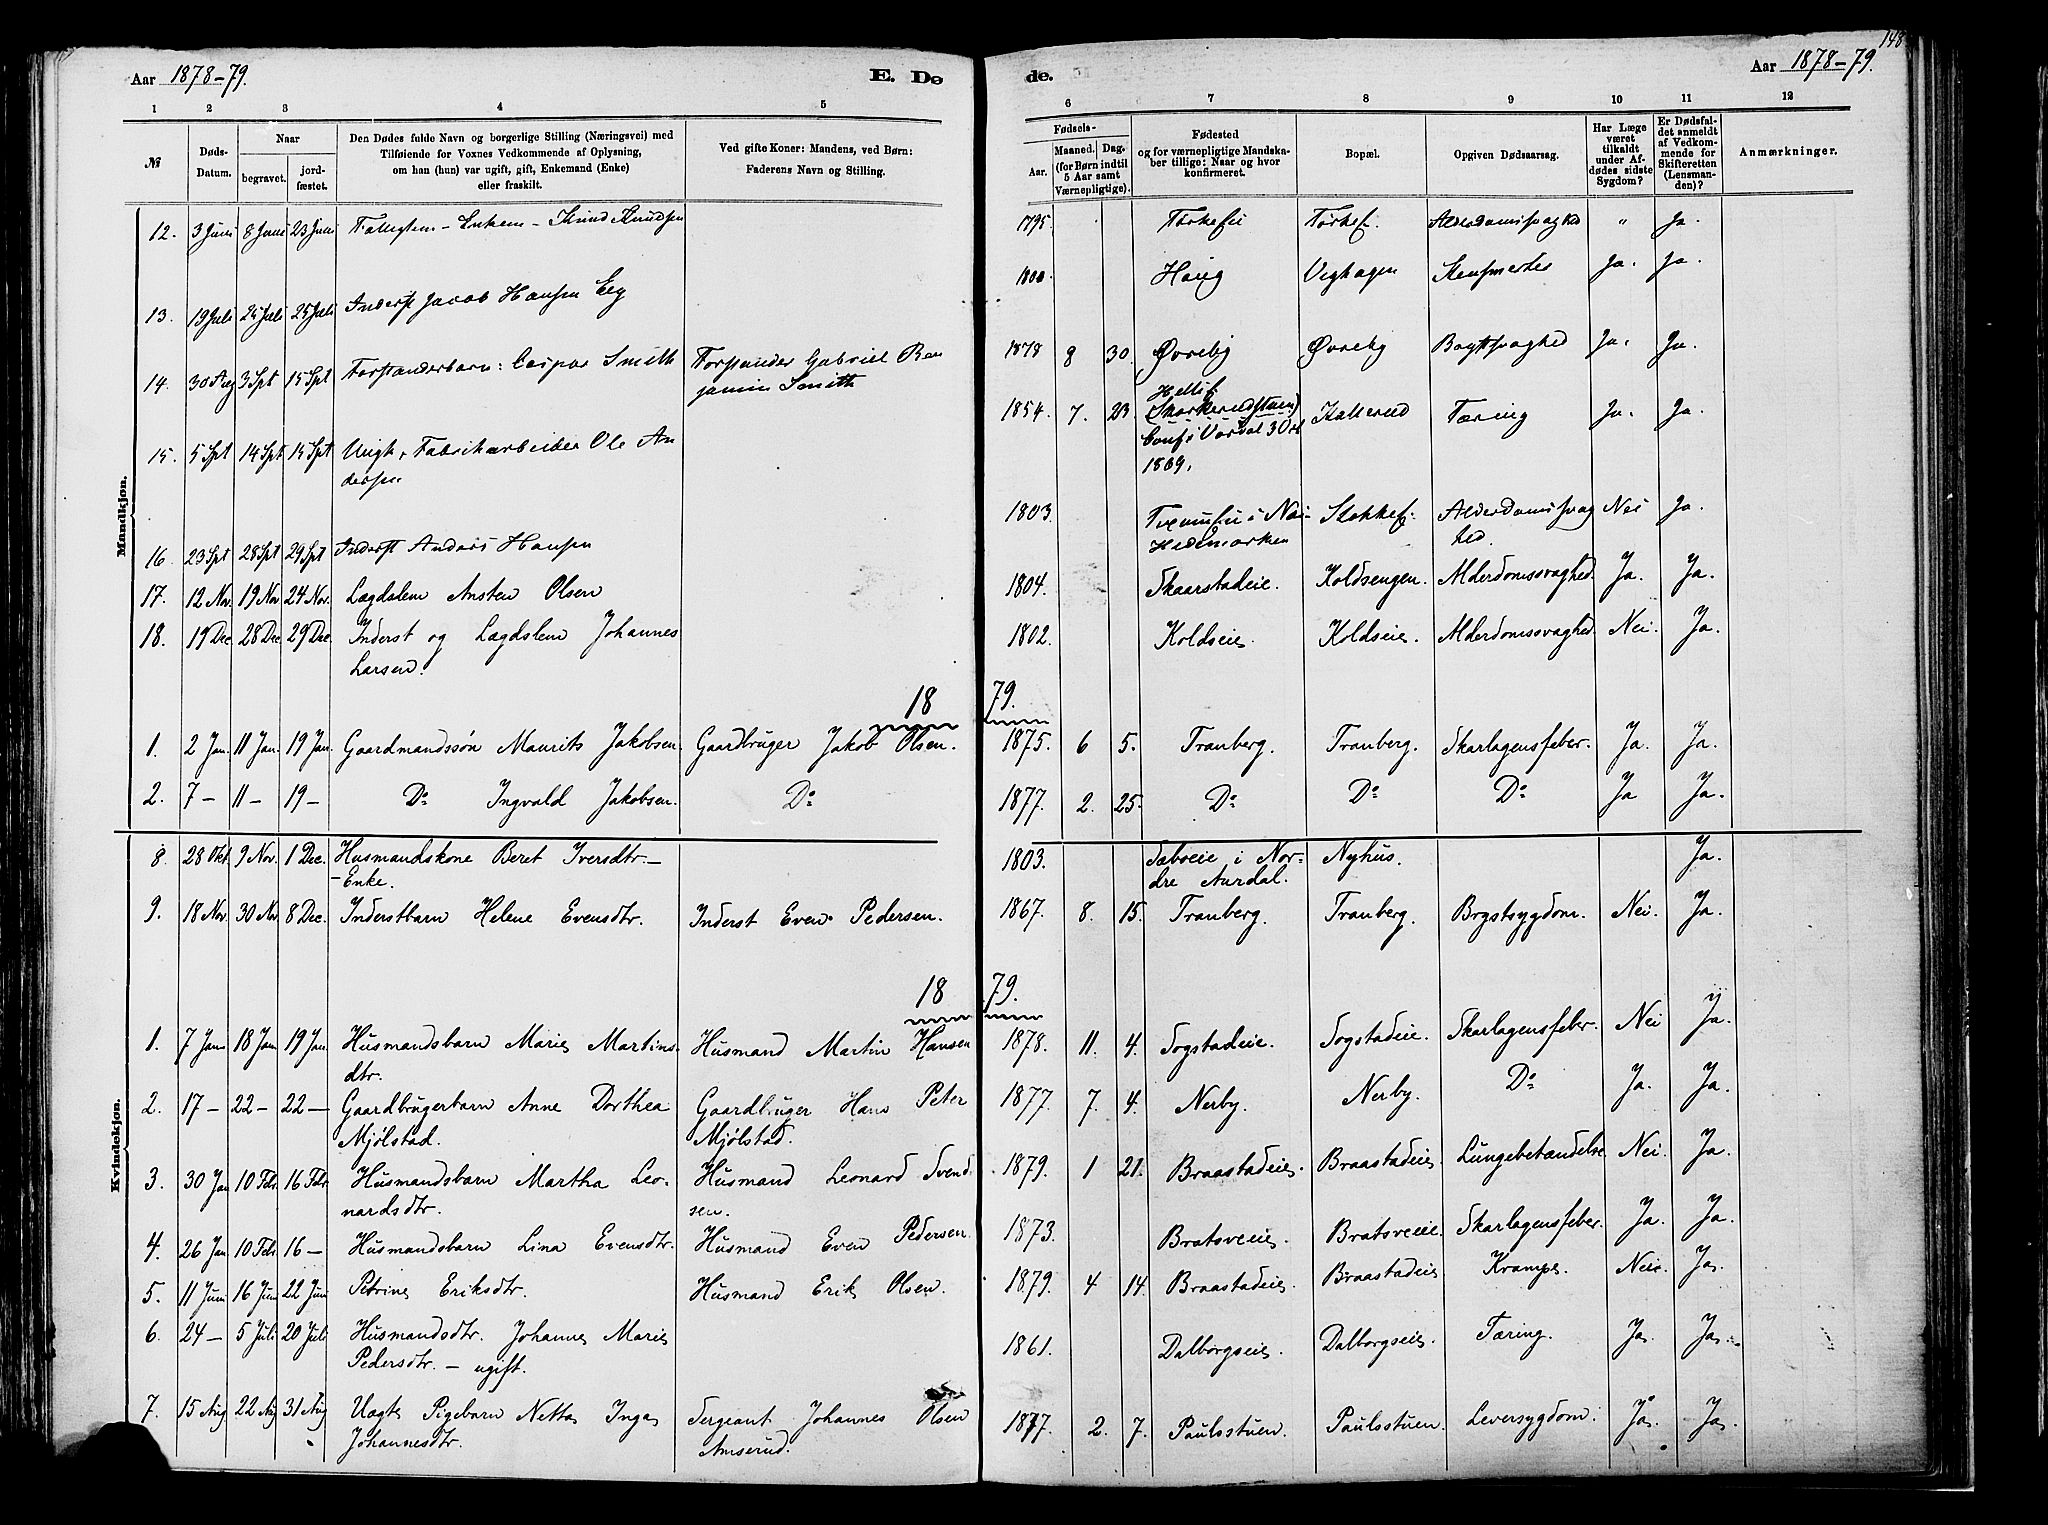 148
Aar 1878-79. E. Dø de. Aar 1878-79.
1 2 3 4 5 6 7 8 9 10 11 12
№ Døds-Datum. Naar begravet. jordfæstet. Den Dødes fulde Navn og borgerlige Stilling (Næringsvei) med Tilføiende for Voxnes Vedkommende af Oplysning, om han (hun) var ugift, gift, Enkemand (Enke) eller fraskilt. Ved gifte Koner: Mandens, ved Børn: Faderens Navn og Stilling. Fødsels- Aar. Maaned. Dag. (for Børn indtil 5 Aar samt Værnepligtige). Fødested og for værnepligtige Mandskaber tillige: Naar og hvor konfirmeret. Bopæl. Opgiven Dødsaarsag. Har Læge været tilkaldt under Afdødes sidste Sygdom? Er Dødsfaldet anmeldt af Vedkommende for Skifteretten (Lensmanden)? Anmærkninger.
Mandkjøn.
12. 3 Juni 8 Juni 23 Juni Fattiglem - Enkem - Knud Knudsen 1795. Alderdomssvaghed " Ja.
13. 19 Juli 25 Juli 25 Juli Inderst Jacob Hansen 1800 Haug Ja. Ja.
14. 30 Aug 3 Spt 15 Spt Forstanderbarn: Caspar Smith Forstander Gabriel Ben
jamin Smith 1878 8 30. Øvreby Øvreby Brystsvaghed Ja. Ja.
15. 5 Spt 14 Spt 15 Spt Ungk, Fabrikarbeider Ole An
dersen 1854. 7. 23 Conf i Vardal 3 Oct
1869. Kallerud Tæring Ja. Ja.
16. 23 Spt 28 Spt 29 Spt Inderst Anders Hansen 1803. i
Hedemarken Alderdomssvag
hed. Nei Ja.
17. 12 Nov. 19 Nov 24 Nov. Lægdslem Ansten Olsen 1804. Skaarstadeie. Koldsengen. Alderdomssvaghed. Ja. Ja.
18. 19 Dec 28 Dec 29 Dec. Inderst og Lægdslem Johannes
Larsen. 1802. Koldseie. Koldseie. Alderdomssvaghed. Nei. Ja.
18 79.
1. 2 Jan. 11 Jan. 19 Jan. Gaardmandssøn Maurits Jakobsen. Gaardbruger Jakob Olsen. 1875. 6 5. Tranberg. Tranberg. Skarlagensfeber. Ja. Ja.
2. 7 - 11 - 19 - Do Ingvald Jakobsen. Do 1877. 2. 25. Do Do Do Ja Ja.
Kvindekjøn.
8. 28 Okt. 9 Nov. 1 Dec. Husmandskone Beret Iversdtr. -
- Enke. 1803. Sæbøeie i Nor-
dre Aurdal. Nyhus. Ja.
9. 18 Nov. 30 Nov 8 Dec. Inderstbarn Helene Evensdtr. Inderst Even Pedersen. 1867. 8. 15. Tranberg. Tranberg. Brystsygdom. Nei. Ja.
18 79.
1. 7 Jan 18 Jan 19 Jan. Husmandsbarn Marie Martins-
dtr. Husmand Martin Hansen 1878. 11. 4. Sogstadeie. Sogstadeie. Skarlagensfeber. Nei Ja.
2. 17 - 22 - 22 - Gaardbrugerbarn Anne Dorthea
Mjølstad. Gaardbruger Hans Peter
Mjølstad. 1877. 7. 4. Nerby. Nerby. Do Ja. Ja.
3. 30 Jan 10 Febr. 16 Febr. Husmandsbarn Martha Leo-
nardsdtr. Husmand Leonard Svend
sen. 1879. 1 21. Braastadeie. Braastadeie. Lungebetændelse Nei. Ja.
4. 26 Jan 10 Febr. 16 - Husmandsbarn Lina Evensdtr. Husmand Even Pedersen. 1873. Bratsveeie. Bratsveeie. Skarlagensfeber. Ja. Ja.
5. 11 Juni 16 Juni 22 Juni Petrine Eriksdtr. Husmand Erik Olsen. 1879. 4 14. Braastadeie. Braastadeie Krampe. Nei. Ja.
6. 24 - 5 Juli 20 Juli Husmandsdtr. Johanne Marie
Pedersdtr. - ugift. 1861. Dalborgseie. Dalborgseie. Tæring. Ja. Ja.
7. 15 Aug 22 Aug 31 Aug Uægte Pigebarn Netta Inga
Johannesdtr. Sergeant Johannes Olsen
Amserud. 1877. 2. 7. Paulsstuen. Paulsstuen. Leversygdom. Ja. Ja.